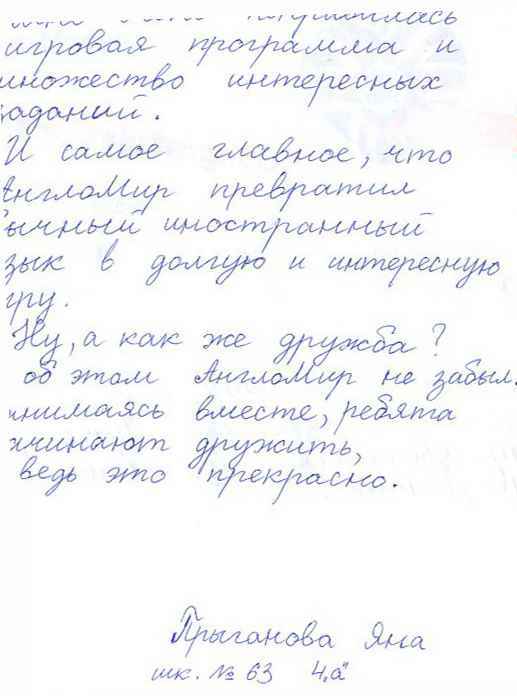 понравилась
игровая программа и
множество интересных
заданий.
И самое главное, что
АнглоМир превратил
ычный иностранный
зык в долгую и интересную
гру.
Ну, а как же дружба?
об этом АнглоМир не забыл.
нимаясь вместе, ребята
чинают дружить,
ведь это прекрасно.
Прыганова Яна
шк. № 63 4„а"